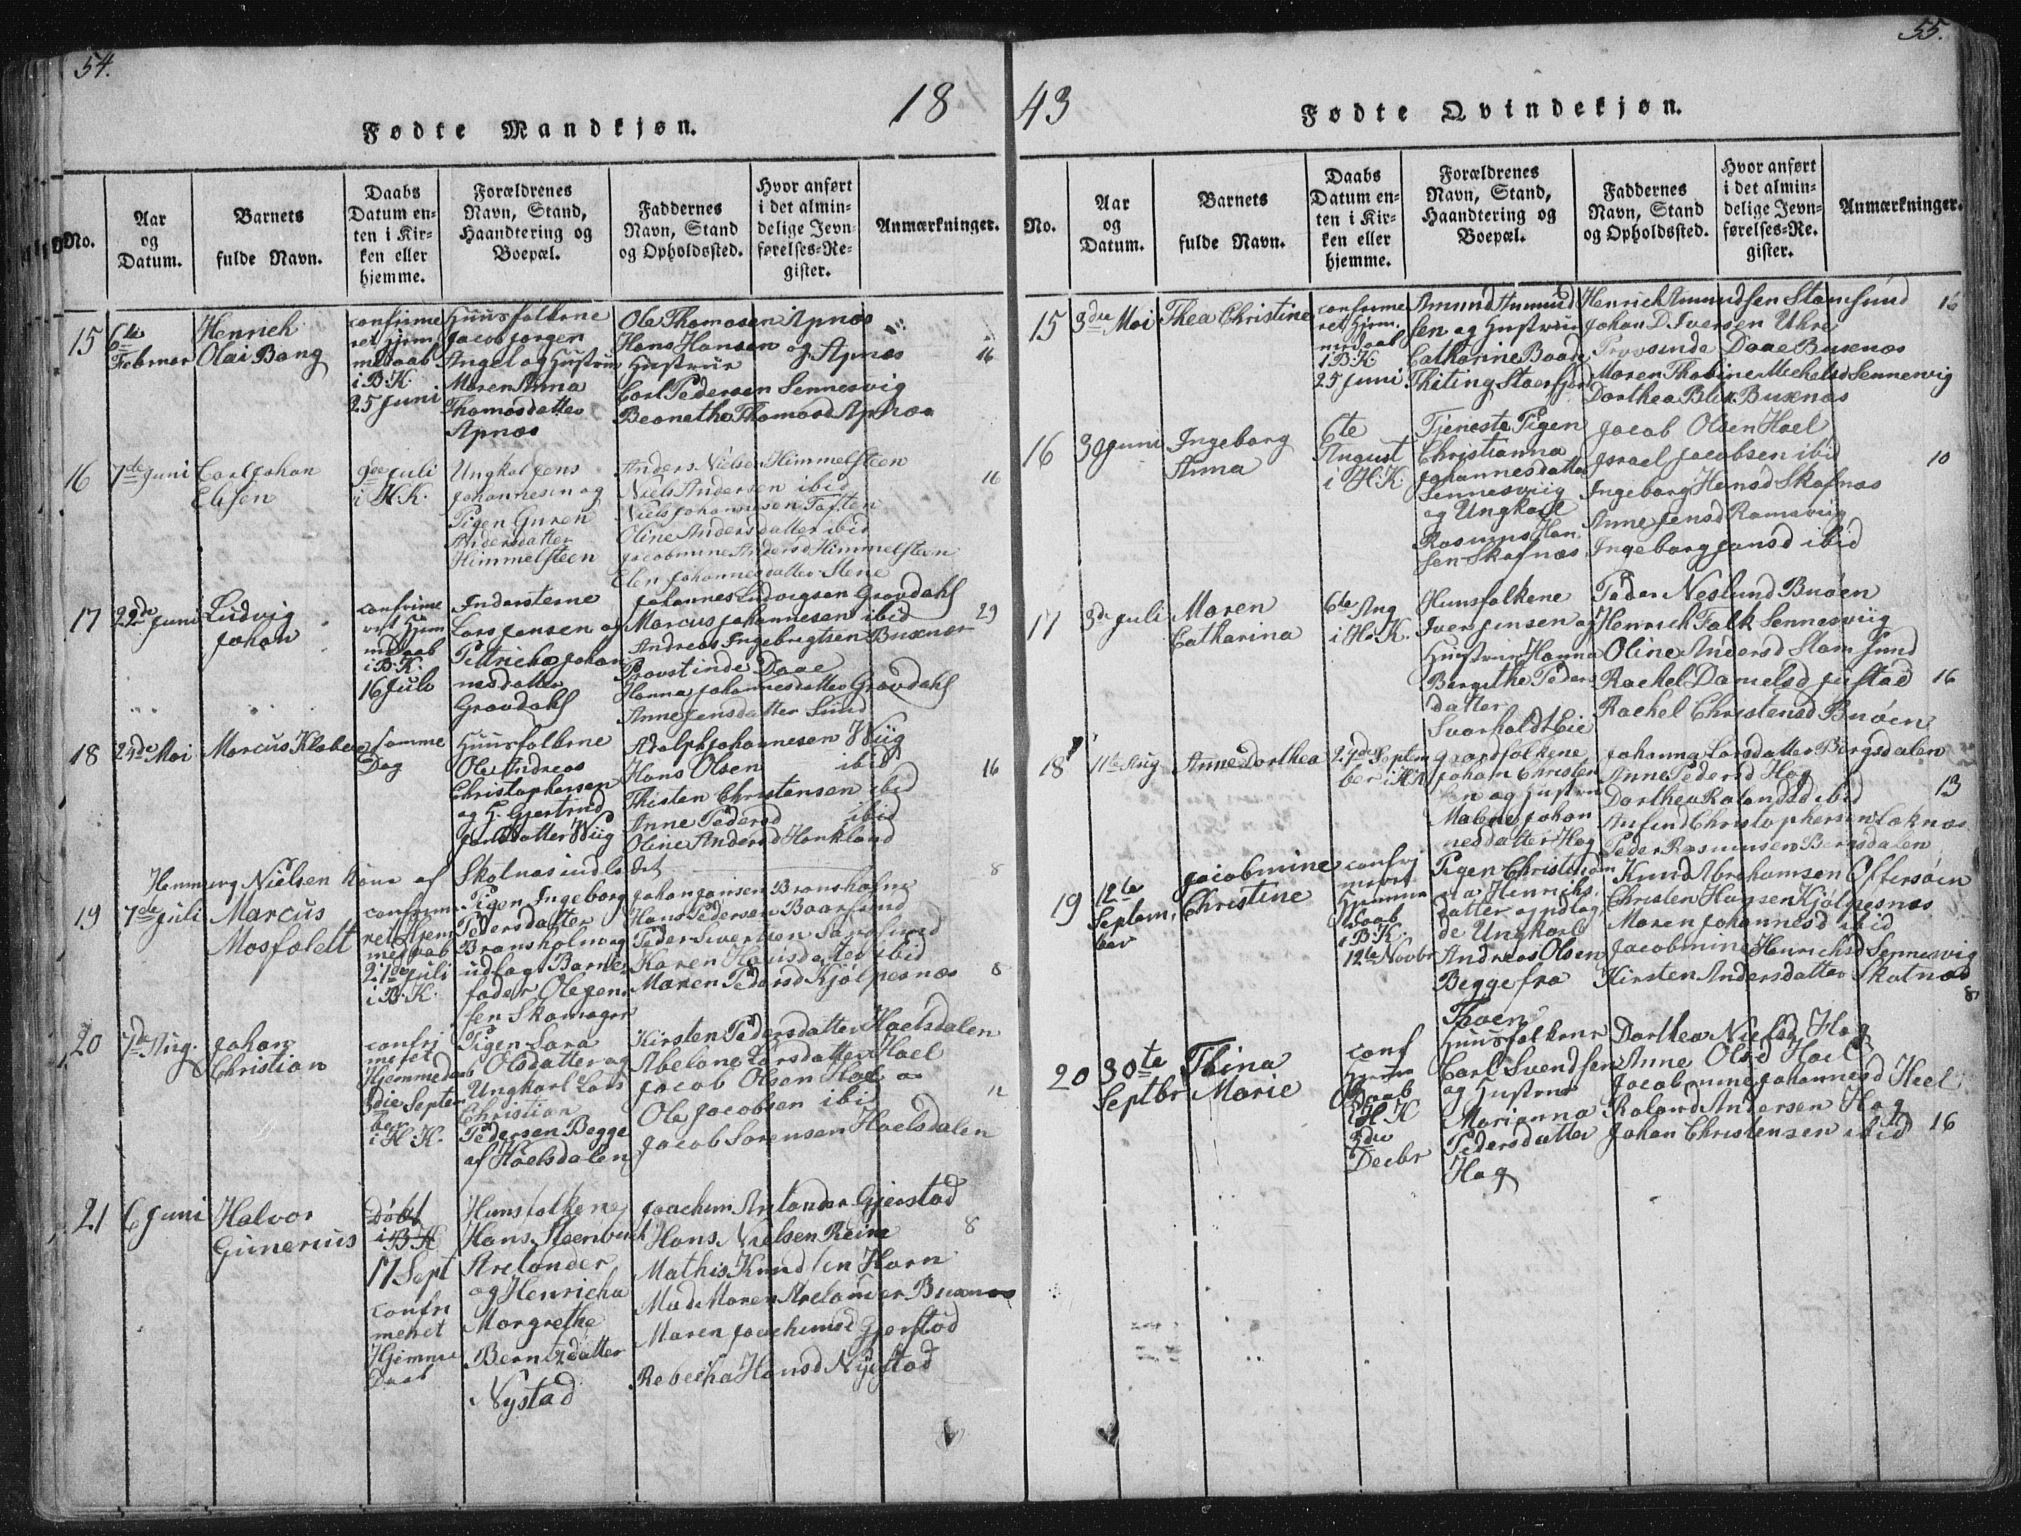 54.
18
Fødte Mandkjøn.
No.
Aar
og
Datum.
Barnets
fulde Navn.
Daabs
Datum en-
ten i Kir-
ken eller
hjemme.
Forældrenes
Navn, Stand,
Haandtering og
Boepæl.
Faddernes
Navn, Stand
og Opholdssted.
Hvor anført
i det almin-
delige Jevn-
førelses-Re-
gister.
Anmærkninger.
15
6te
Februar
Henrich
Olai Bang
confirme
ret Hjem
medaab
i B.K.
25 Juni
Huusfolkene
Jacob Jørgen
Angel og Hustrue
Maren Anna
Thomasdatter
Apnæs
Ole Thomasen Apnæs
Hans Hansen og Apnæs
Hustrue
Carl Pedersen Sennesvig
Beonetha Thomasd Apnæs
16
16
7de Juni
Carl Johan
Elisen
9de Juli
i H.K.
Ungkal Jens
Johannesen og
Pigen Guren
Andersdatter
Himmelsteen
Anders Nielsen Himmelsteen
Niels Andersen ibid
Niels Johannesen Toften
Oline Andersdatter ibid
Jacobmine Andersd Himmelsteen
Elen Johannesdatter Stene
16
17
22de Juni
Ludvig
Johan
confirme
ret Hjem
mdaab
i B.K.
16 Juli
Indersterne
Lars Jensen og
Petricha Johan
nesdatter
Gravdahl
Johannes Ludvigsen Gravdahl
Marcus Johannesen ibid
Andreas Ingebregtsen Buxnæs
Provstinde Daae
Hanna Johannesdatter Gravdahl
Anne Jensdatter Sund
29
18
24de Mai
Marcus Kloboe
samme
Dag
Huusfolkene
Ole Andreas
Christophersen
og H. Gjertrud
Jensdatter Wiig
Adolph Johannesen Wiig
Hans Olsen ibid
Thisten Christensen ibid
Anne Pedersd ibid
Oline Andersd Hankland
16
Hemmerg Nielsen kone af Skolnæs indladet
8
19
7de Juli
Marcus
Mosfoldt
confirme
ret Hjem
medaab
21de Juli
i B.K.
Pigen Ingeborg
Pedersdatter
Bransholm og
udlagt Barne
fader Ole Jen
sen Skamager
Johan Jansen Bransholm
Hans Pedersen Baarsund
Peder Sivertsen
Karen Hansdatter ibid
Maren Pedersd Kjølpesnæs
8
20
7de Aug.
Johan
Christian
confri
meret
Hjemmedaab
3die Septem
ber
i H.K.
Pigen Sara
Olsdatter og
Ungkarl Lars
Christian
Pedersen Begge
af Hoelsdalen
Kirsten Pedersdatter Hoelsdalen
Abelone Larsdatter Hoel
Jacob Olsen Hoel
Ole Jacobsen ibid
Jacob Sørensen Hoelsdalen
12
21
6 Juni
Halvor
Gunerius
Døbt
i B K
17 Sept
confri
meret
Hjemme
Daab
Huusfolkene
Hans Steenbuch
Arelander
og Henricha
Margrethe
Berntzdatter
Nystad
Joachim Arelander Gjerstad
Hans Nielsen Reine
Mathis Knudsen Horn
Mad Maren Arelander Buxnæs
Maren Joachimsd Gjerstad
Rebecka Hansd Nystad
8
55.
43
Fødte Qvindekjøn.
No.
Aar
og
Datum.
Barnets
fulde Navn.
Daabs
Datum en-
ten i Kir-
ken eller
hjemme.
Forældrenes
Navn, Stand,
Haandtering og
Boepæl.
Faddernes
Navn, Stand
og Opholdssted.
Hvor anført
i det almin-
delige Jevn-
førelses-Re-
gister.
Anmærkninger.
15
3die Mai
Thea Christine
confirme
ret Hjem
medaab
i B.K.
25 Juni
Amund Amund
sen og Hustrue
Catharine Baade
Thiting Stoerfjor
Henrich Amundsen Stamsund
Johan D Iversen Uhre
Provstinde Daae Buxnæs
Maren Thobine Michelsd Sennesvig
Dorthea Blix Buxnæs
16
16
30 Juni
Ingeborg
Anna
6te
August
i H.K
Tjeneste Pigen
Christianna
Johannesdatter
Sennesviig
og Ungkarl
Rasmus Han
sen Skafnæs
Jacob Olsen Hoel
Israel Jacobsen ibid
Ingeborg Hansd Skafnæs
Anne Jensd Ramsviig
Ingeborg Jansd ibid
10
17
3die Juli
Maren
Catharina
6te Aug
i H.K.
Huusfolkene
Iver Jensen og
Hustrue Hanna
Bergithe Peders
datter
Svarholdt Eie
Peder Neslund Buøen
Henrich Falk Sennesviig
Oline Andersd Stamsund
Rachel Danielsd Justad
Rachel Christensd Buøen
16
18
11te Aug
Anne Dorthea
24de Septem
ber i H.K
Gaardfolkene
Johan Christen
sen og Hustrue
Malene Johan
nesdatter Hag
Johanna Larsdatter Bergsdalen
Anne Pedersd Hag
Dorthea Rolandsd ibid
Anfind Christophersen Løknæs
Peder Rasmussen Bergsdalen
13
19
12te
Septem
ber
Jacobmine
Christine
confri
meret
Hjemme
Daab
i B.K.
12te Novbr
Pigen Christian
na Henriks
datter og udlag
de Ungkarl
Andreas Olsen
Begge fra
Toen
Knud Abrahamsen Offersøen
Christen Hansen Kjølpesnæs
Maren Johannesd ibid
Jacobmine Henrichsd Sennesvig
Kirsten Andersdatter Skotnæs
8
20
30te
Septbr
Thina
Marie
conf
Hjemme
Daab
H K
3die
Decbr
Huusfolkene
Carl Svendsen
og Hustrue
Marianna
Pedersdatter
Hag
Dorthea Nielsd Hag
Anne Olsd Hoel
Jacobmine Johannesd Hoel
Roland Andersen Hag
Johan Christensen ibid
16